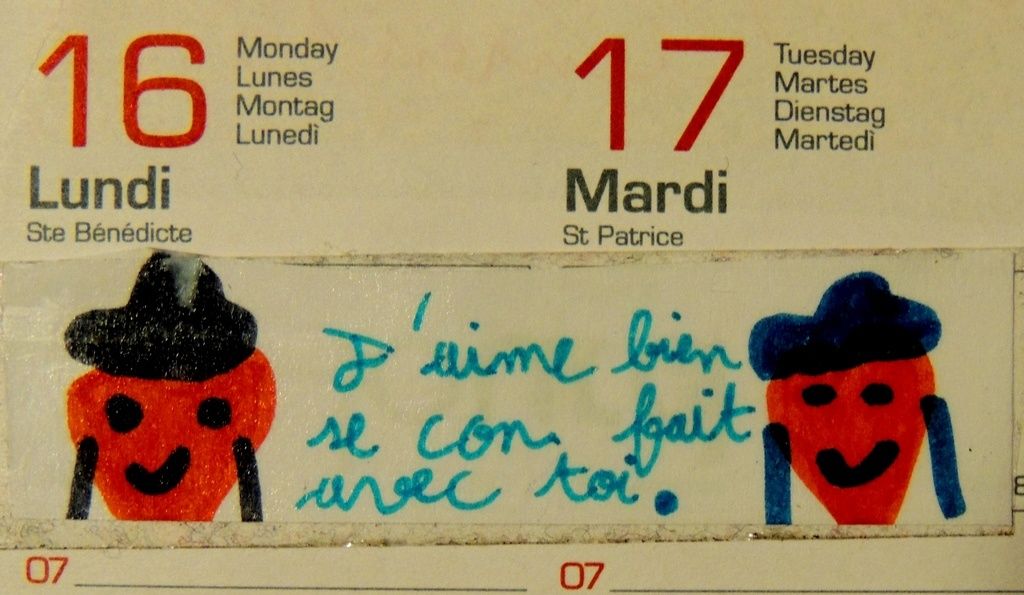 16
Monday
Lunes
Montag
Lunedì
Lundi
Ste Bénédicte
17
Tuesday
Martes
Dienstag
Martedì
Mardi
St Patrice
J'aime bien
se con fait
avec toi.
07
07
8